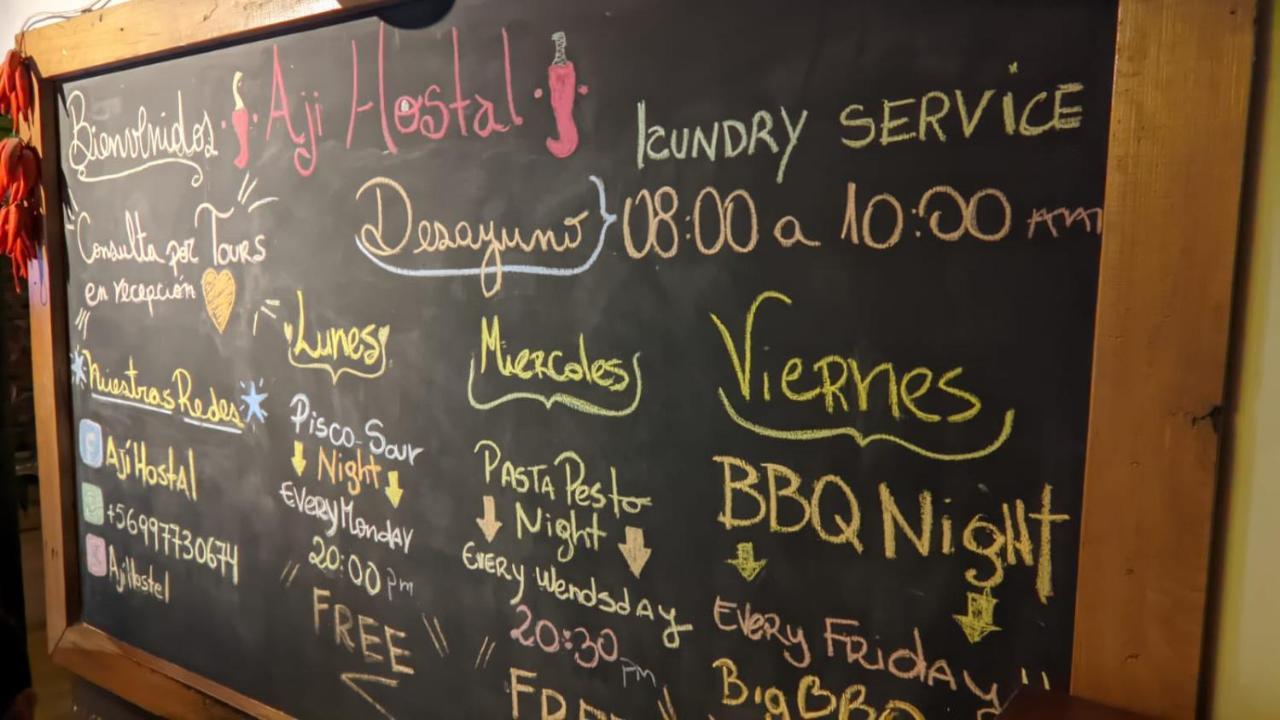 Bienvenidos Aji Hostal
LCUNDRY SERVICE
Desayuno 08:00 a 10:00 AM
Consulta por Tours
en recepción
Nuestras Redes
AjíHostal
+56997730674
AjiHostel
Lunes
Pisco-Sour
Night
EVERY MONDAY
20:00 pm
FREE
Miercoles
PASTA Pesto
Night
EVERY WENDSDAY
20:30 pm
FREE
Viernes
BBQ NigHt
EVERY FRiDAY
Big BBQ